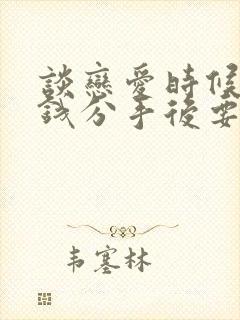 談戀愛時候
錢分手後要
韦塞林